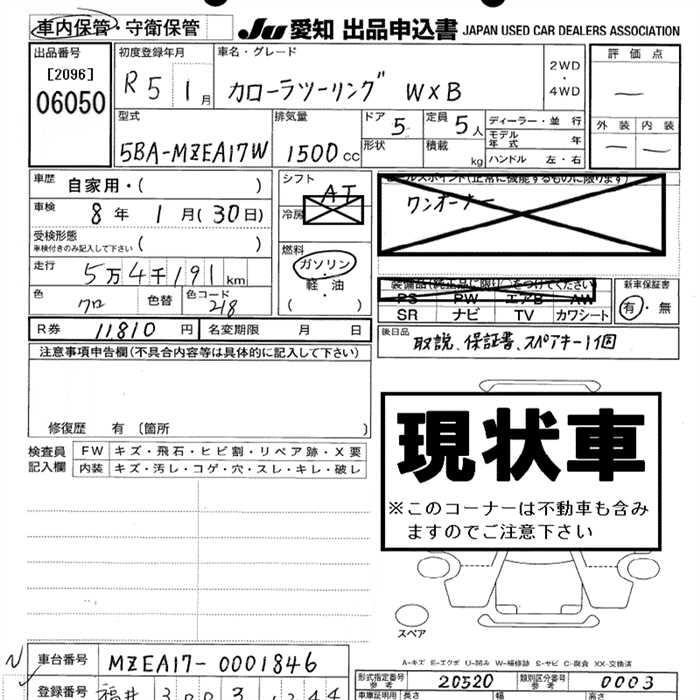 車内保管・守衛保管
JU 愛知 出品申込書 JAPAN USED CAR DEALERS ASSOCIATION
出品番号
[2096]
06050
初度登録年月
R 5 1月
車名・グレード
カローラツーリング WXB
2WD
・
4WD
評価点
—
外装 内装
— —
型式
5BA-MZEA17W
排気量
1500cc
ドア 5
形状
定員 5人
積載 kg
ディーラー・並行
モデル年式 年
ハンドル 左・右
車歴 自家用・( )
車検 8年 1月(30日)
受検形態
車検付きのみ記入して下さい ( )
走行 5万4千191km
色 クロ 色替 色コード 218
シフト AT
冷房
燃料
ガソリン
・
軽・油
( )
セールスポイント(正常に機能するものに限ります)
ワンオーナー
装備品(純正品に限り○をつけてください)
PS PW エアB AW
SR ナビ TV カワシート
新車保証書
有・無
R券 11810円 名変期限 月 日
後日品
取説、保証書、スペアキー1個
注意事項申告欄(不具合内容等は具体的に記入して下さい)
修復歴 有 〔箇所 〕
検査員記入欄
FW キズ・飛石・ヒビ割・リペア跡・X要
内装 キズ・汚レ・コゲ・穴・スレ・キレ・破レ
現状車
※このコーナーは不動車も含み
ますのでご注意下さい
スペア
A-キズ E-エクボ U-凹み W-補修跡 S-サビ C-腐食 XX-交換済
車台番号 MZEA17-0001846
登録番号 福井 300
形式指定番号 参考 20520
類別区分番号 参考 0003
車庫証明用 長さ 幅 高さ